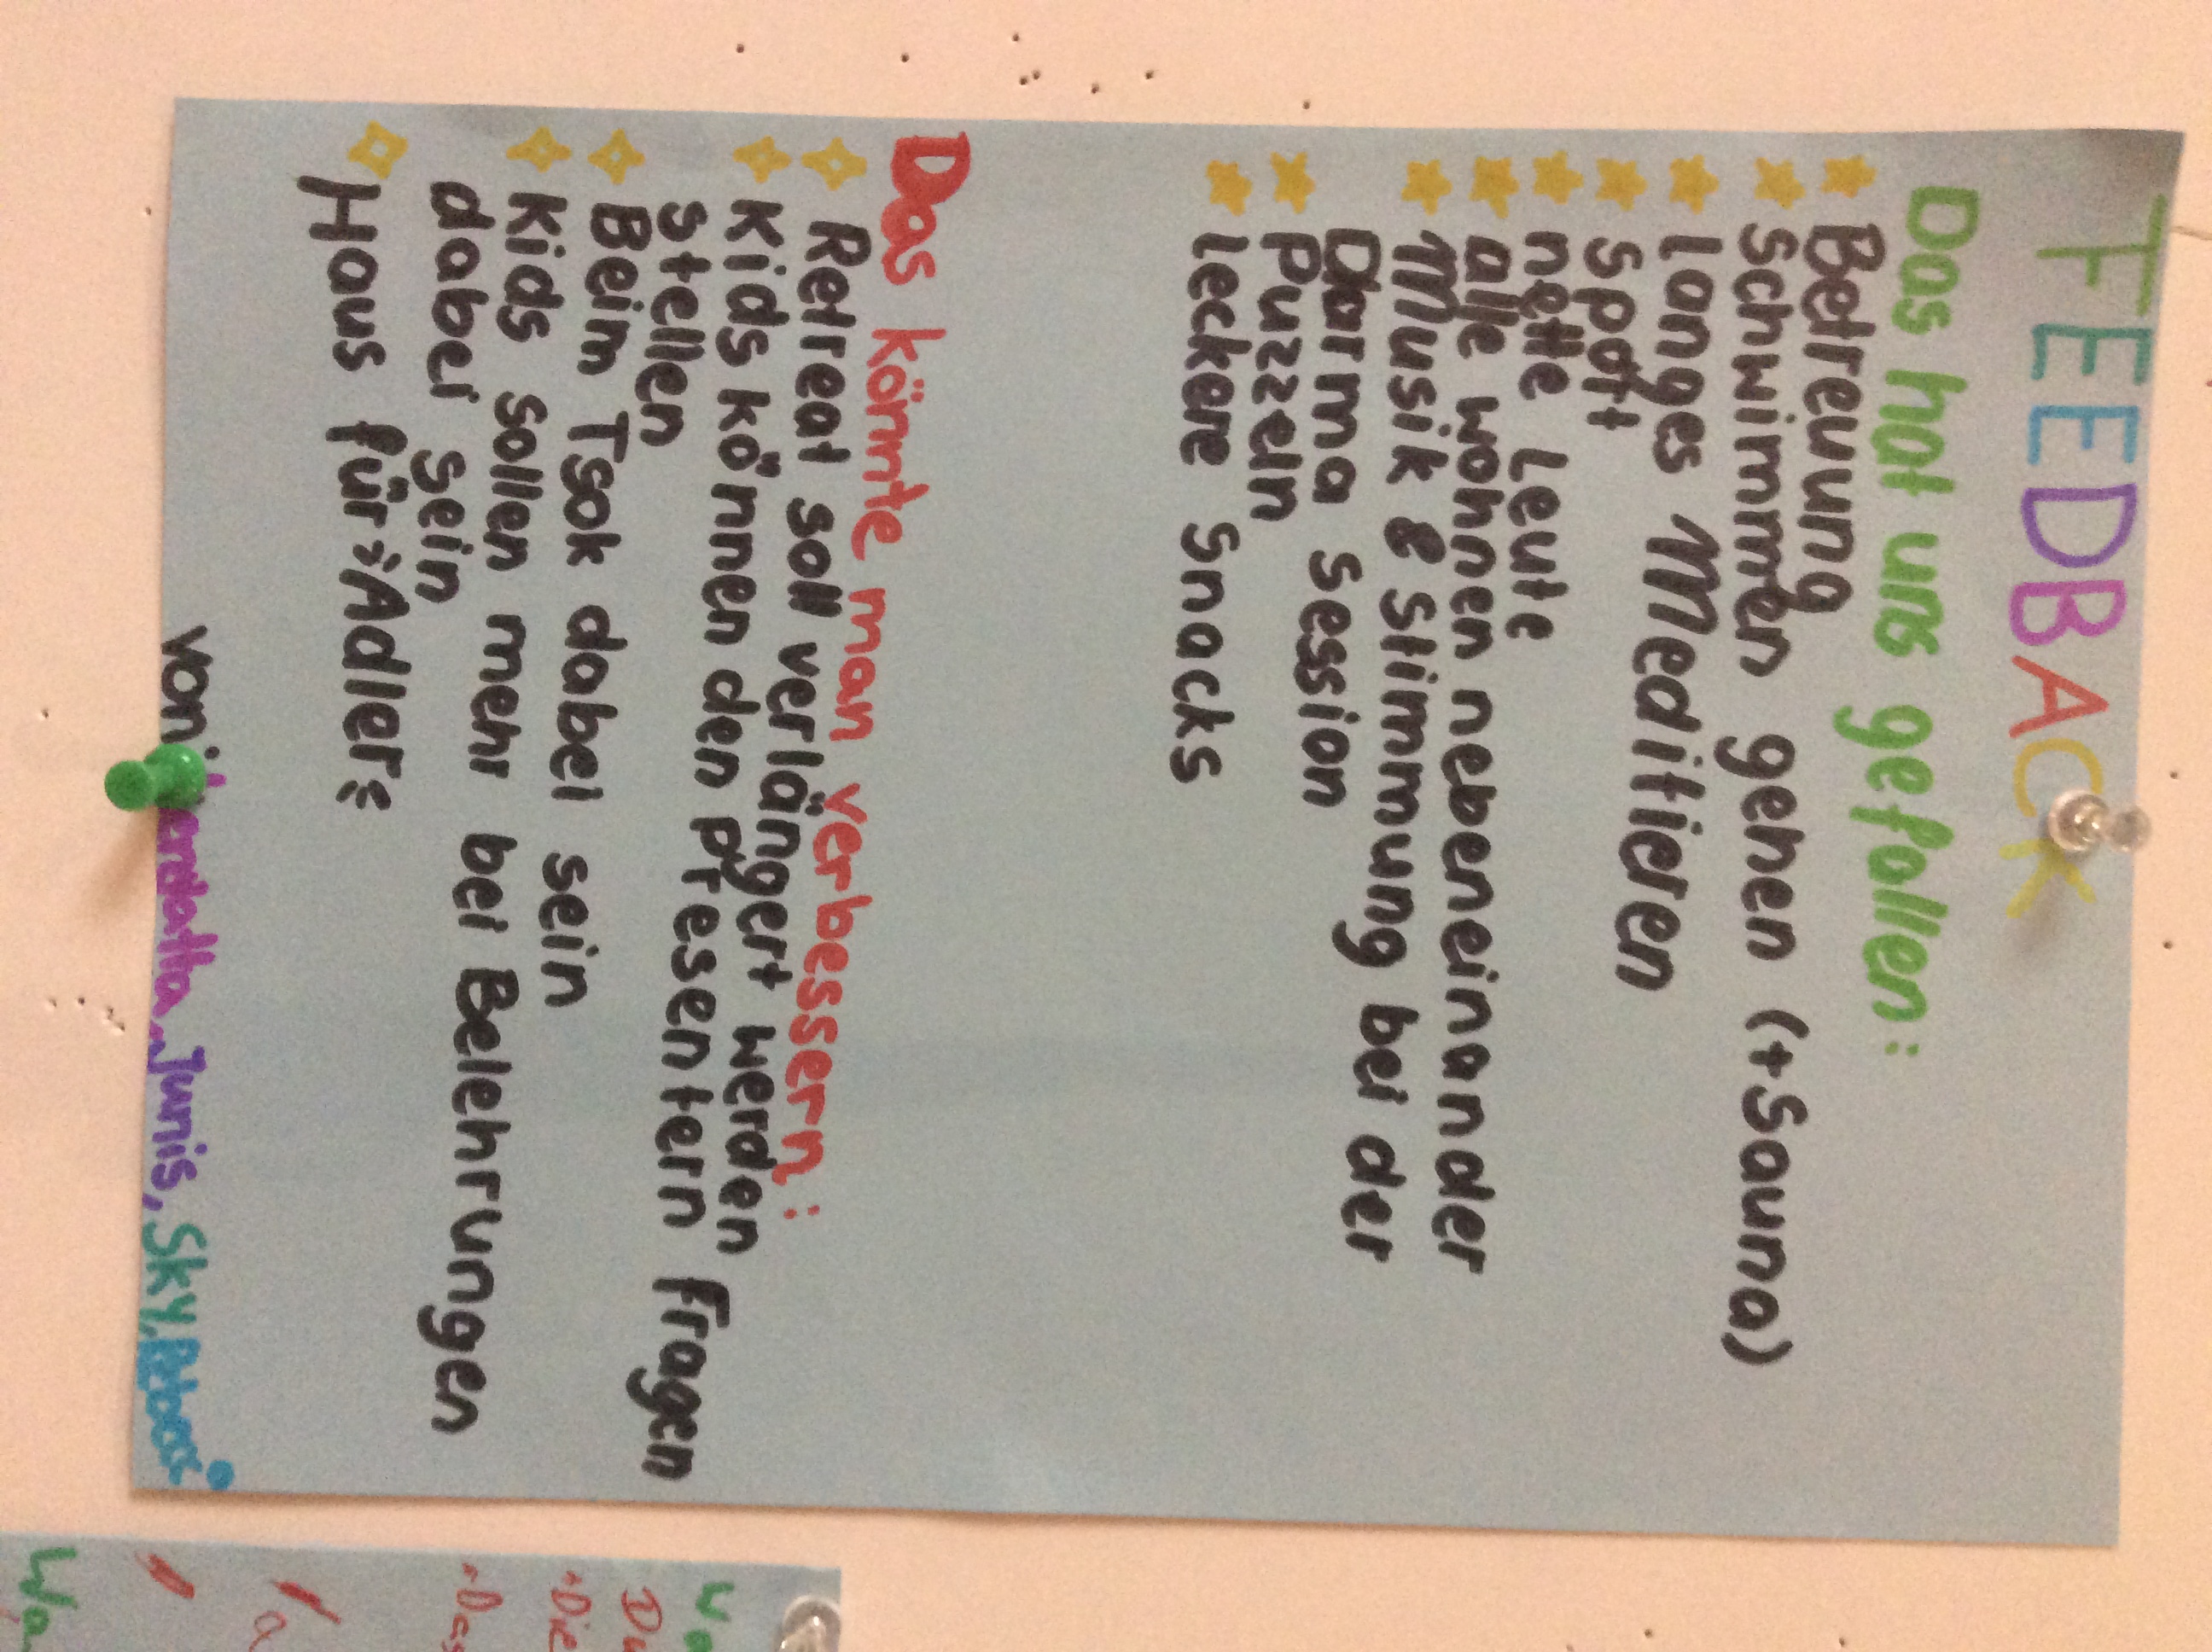 FEEDBACK
Das hat uns gefallen:
Betreuung
Schwimmen gehen (+Sauna)
Langes Meditieren
Spott
nette Leute
alle wohnen nebeneinander
Musik & Stimmung bei der
Darma Session
Puzzeln
leckere Snacks
Das könnte man verbessern:
Retreat soll verlängert werden
Kids können den Presentern Fragen
stellen
Beim Tsok dabei sein
Kids sollen mehr bei Belehrungen
dabei sein
Haus für Adler
von
Junis, Sky,